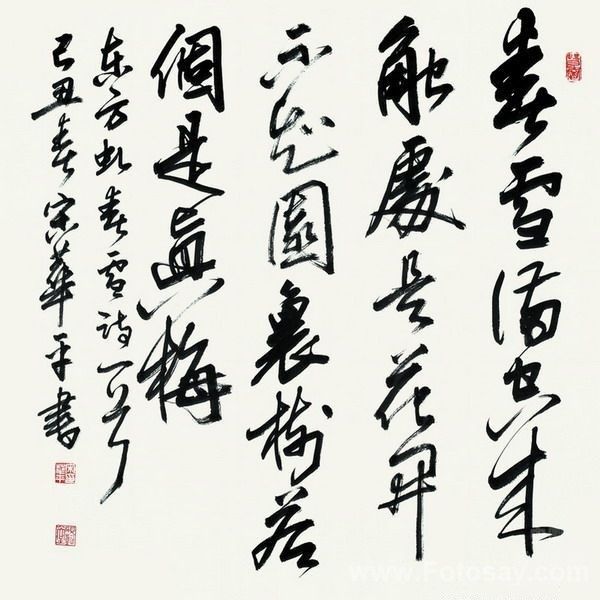 春雪滿空来
触處是花開
不知園裏樹若
個是眞梅
东方虬春雪詩一首
己丑春宋華平書
www.Fotosay.com